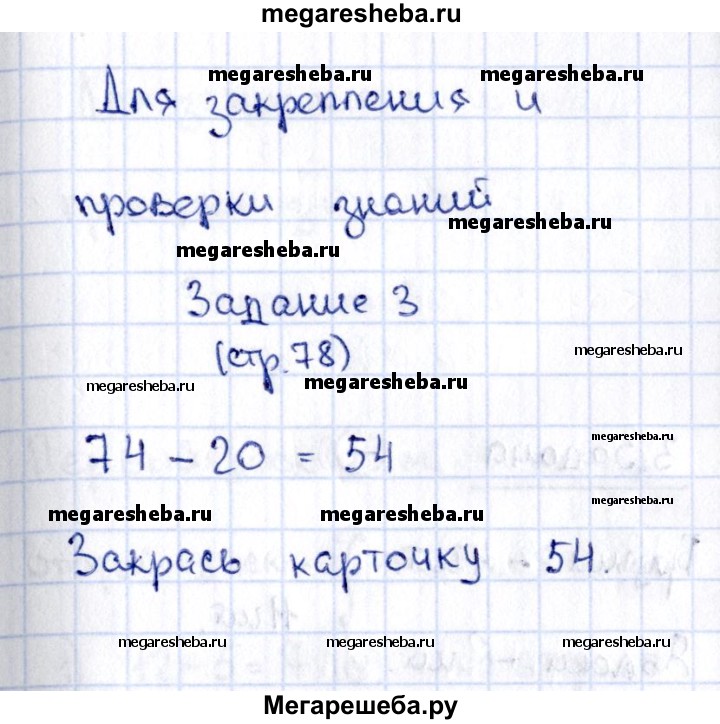 megaresheba.ru
megaresheba.ru megaresheba.ru
Для закрепления и
проверки знаний
megaresheba.ru
megaresheba.ru
Задание 3
(стр. 78)
megaresheba.ru
megaresheba.ru megaresheba.ru
74 - 20 = 54
megaresheba.ru
megaresheba.ru
megaresheba.ru megaresheba.ru
Закрась карточку 54.
megaresheba.ru megaresheba.ru megaresheba.ru
Мегарешеба.ру